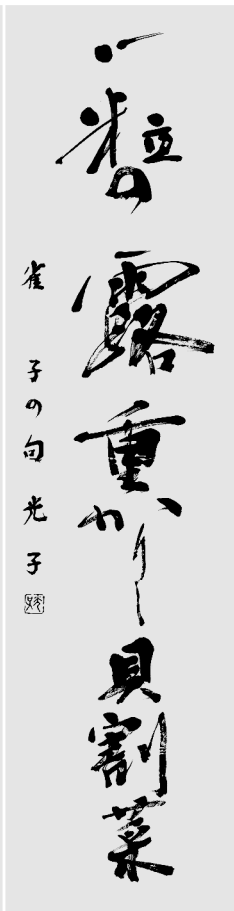 一粒の露重かりし貝割菜
雀子の句 光子